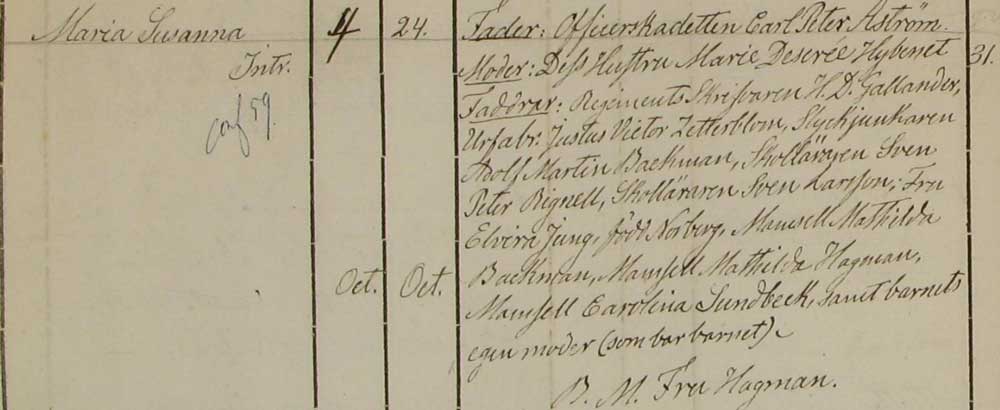 Maria Susanna
Intr.
conf 59.
4
24.
Oct.
Oct.
Fader: Officerskadetten Carl Peter Åström.
Moder: Dess Hustru Marie Deserée Hybenet
31.
Faddrar: Regiments Skrifvaren H. D. Gallander,
Urfabr: Justus Victor Zetterblom, Styckjunkaren
Adolf Martin Backman, Skolläraren Sven
Peter Rignell, Skolläraren Sven Larsson; Fru
Elvira Jung, född Norberg, Mamsell Mathilda
Backman, Mamsell Mathilda Hagman,
Mamsell Carolina Sundbeck, samt barnets
egen moder (som bar barnet).
B. M. Fru Hagman.